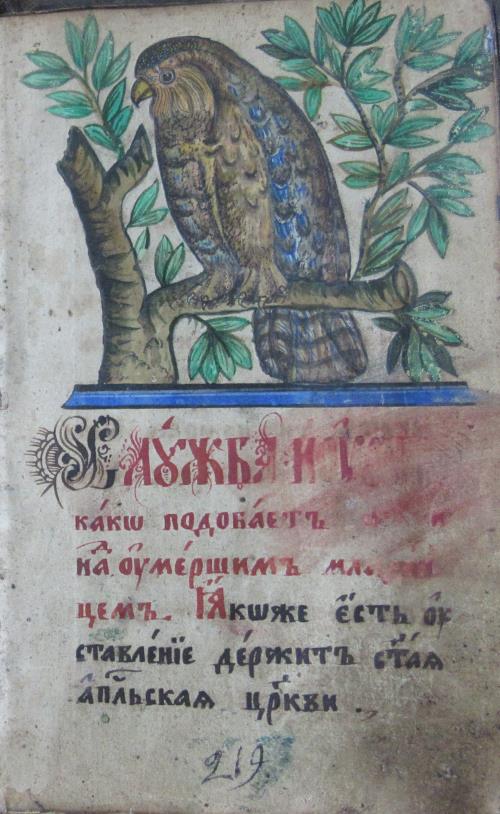 Слꙋ́жба и
ка́кѡ подоба́етъ
наⷣ ᲂу҆ме́ршимъ
цемъ. Ꙗ҆́кѡже є҆́сть ᲂу҆
ставле́нїе де́ржитъ ст҃а́ꙗ
а҆пⷭ҇льскаꙗ цр҃кви .,
219